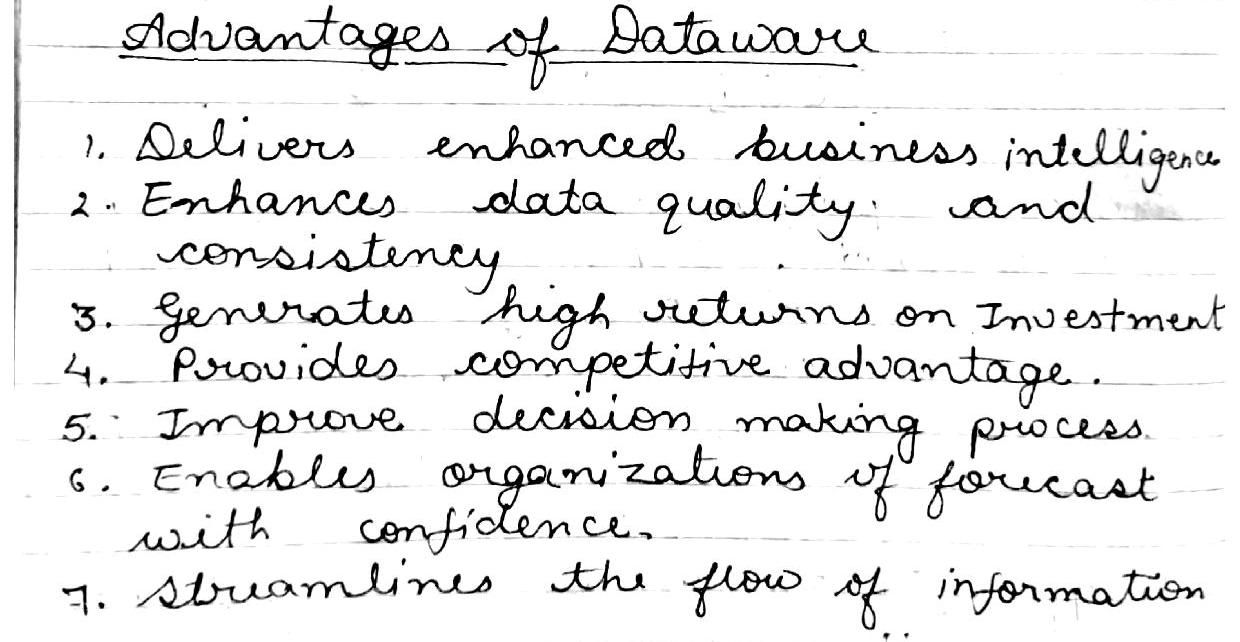 Advantages of Dataware
1. Delivers enhanced business intelligence
2. Enhances data quality and
consistency
3. Generates high returns on Investment
4. Provides competitive advantage.
5. Improve decision making process.
6. Enables organizations of forecast
with confidence.
7. Streamlines the flow of information